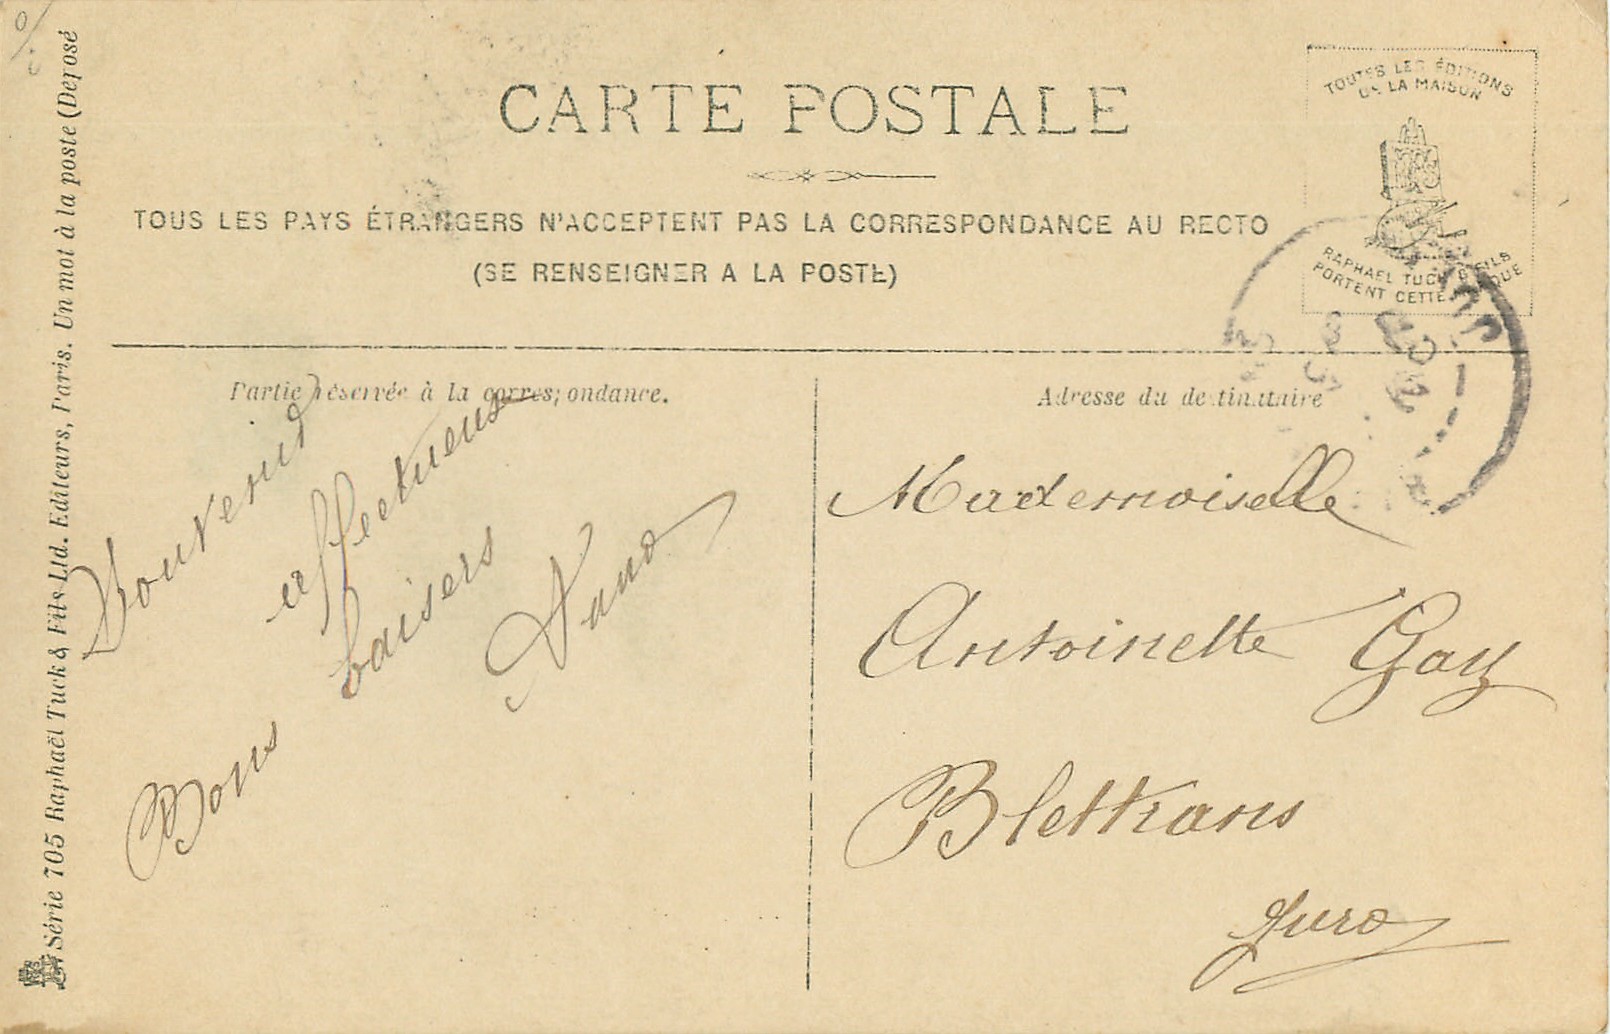 CARTE POSTALE
TOUS LES PAYS ÉTRANGERS N'ACCEPTENT PAS LA CORRESPONDANCE AU RECTO
(SE RENSEIGNER A LA POSTE)
TOUTES LES ÉDITIONS
DE LA MAISON
RAPHAEL TUCK & FILS
PORTENT CETTE MARQUE
Série 705 Raphaël Tuck & Fils Ltd. Editeurs, Paris. Un mot à la poste (Deposé
Partie réservée à la correspondance.
Souvenir
affectueux
Bons baisers
Adresse du destinataire
Mademoiselle
Antoinette Gay
Bletterans
Jura